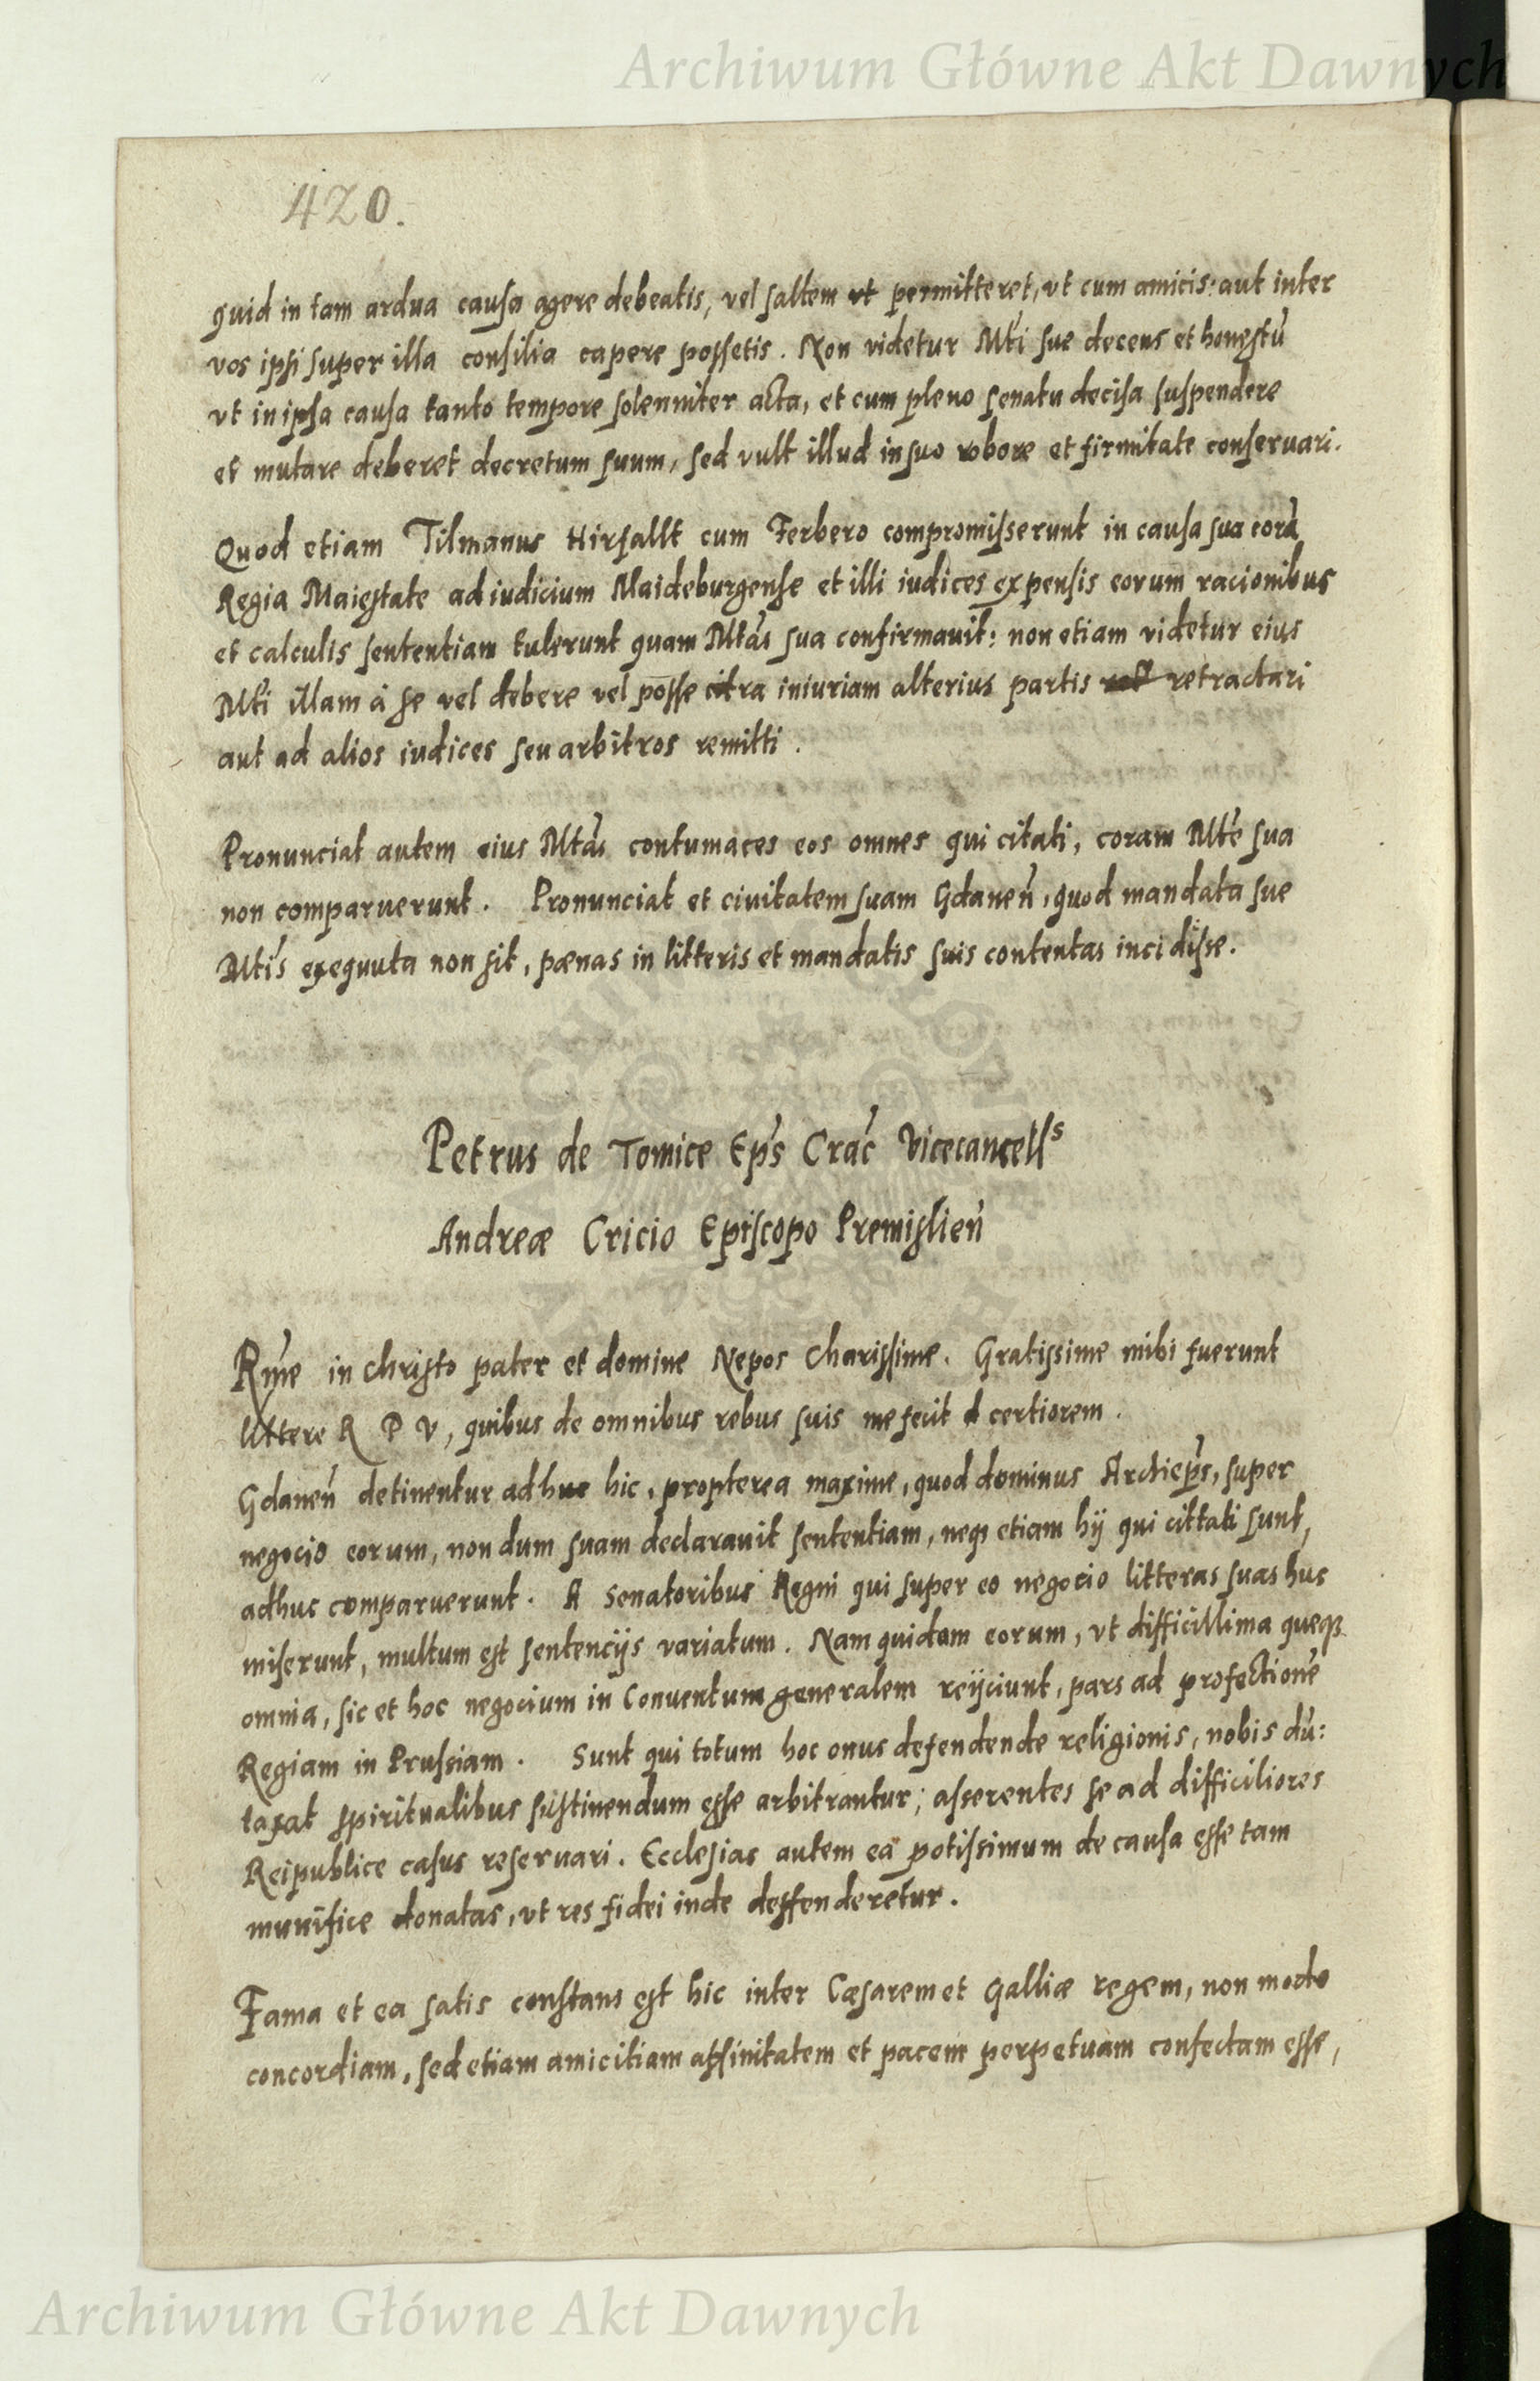 Archiwum Główne Akt Dawnych
420.
quid in tam ardua causa agere debeatis, vel saltem vt permitteret, vt cum amicis: aut inter
vos ipsi super illa consilia capere possetis. Non videtur Mti sue decens et honestũ
vt in ipsa causa tanto tempore solenniter acta, et cum pleno senatu decisa suspendere
et mutare deberet decretum suum, sed vult illud in suo robore et firmitate conseruari.
Quod etiam Tilmanus Hirsallt cum Ferbero compromisserunt in causa sua corã
Regia Maiestate ad iudicium Maideburgense et illi iudices expensis eorum racionibus
et calculis sententiam tulerunt quam Mtas sua confirmauit: non etiam videtur eius
Mti illam à se vel debere vel posse citra iniuriam alterius partis retractari
aut ad alios iudices seu arbitros remitti.
Pronunciat autem eius Mtas contumaces eos omnes qui citati, coram Mte sua
non comparuerunt. Pronunciat et ciuitatem suam Gdaneñ, quod mandata sue
Mtis exequuta non sit, pœnas in litteris et mandatis suis contentas incidisse.
Petrus de Tomice Eps Crac Vicecancells
Andreæ Cricio Episcopo Premislieñ
Rme in Christo pater et domine Nepos Charissime. Gratissime mihi fuerunt
littere R P V, quibus de omnibus rebus suis me fecit certiorem.
Gdaneñ detinentur adhuc hic, propterea maxime, quod dominus Archieps, super
negocio eorum, non dum suam declarauit sententiam, neqz etiam hij qui cittati sunt,
adhuc comparuerunt. A Senatoribus Regni qui super eo negocio litteras suas huc
miserunt, multum est sentencijs variatum. Nam quidam eorum, vt difficillima queqz
omnia, sic et hoc negocium in Conuentum generalem reijciunt, pars ad profectionẽ
Regiam in Prussiam. Sunt qui totum hoc onus defendende religionis, nobis dũ:
taxat spiritualibus sustinendum esse arbitrantur; asserentes se ad difficiliores
Reipublice casus reseruari. Ecclesias autem ea potissimum de causa esse tam
munifice donatas, vt res fidei inde deffenderetur.
Fama et ea satis constans est hic inter Cæsarem et Galliæ regem, non modo
concordiam, sed etiam amicitiam affinitatem et pacem perpetuam confectam esse,
Archiwum Główne Akt Dawnych